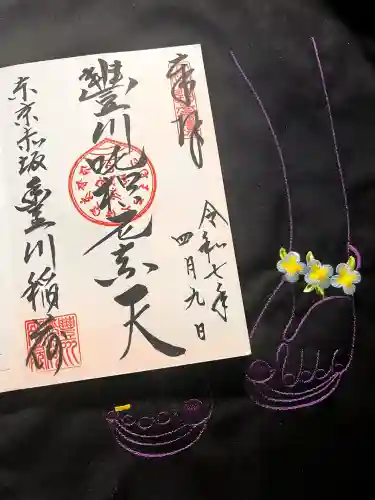 奉拝
令和七年
四月九日
豐川吒枳尼真天
東京赤坂豐川稲荷